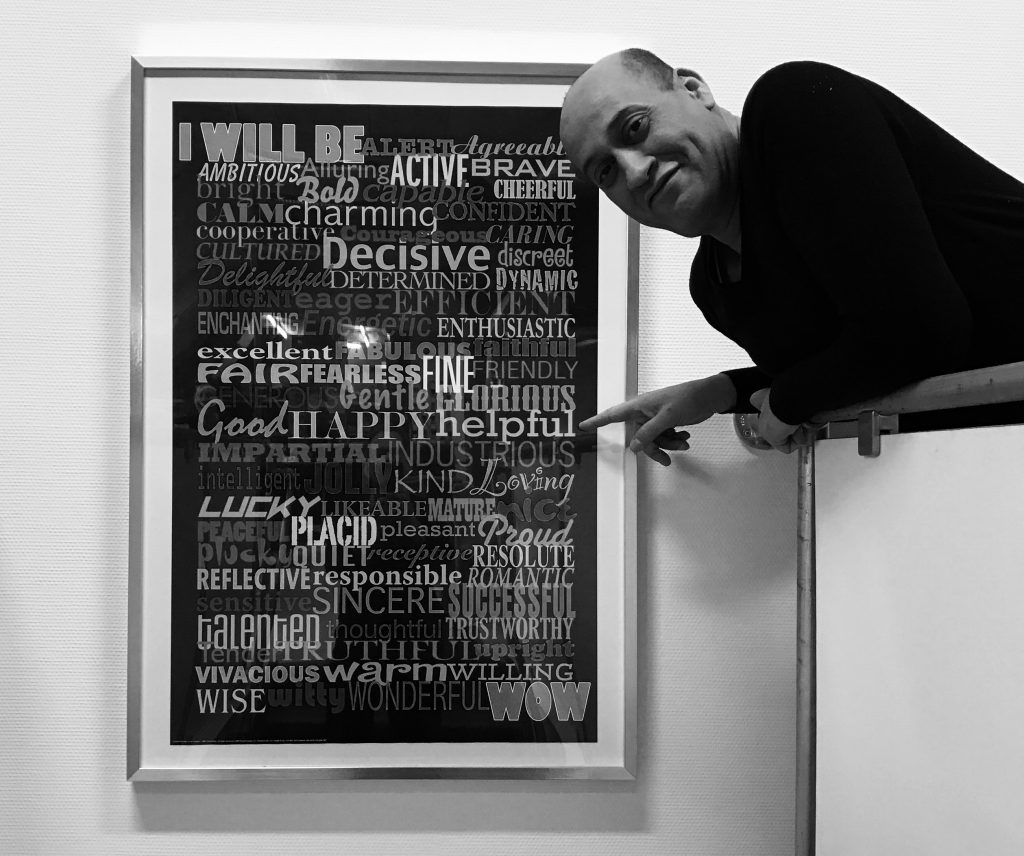 I WILL BE ALERT Agreeable
AMBITIOUS Alluring ACTIVE BRAVE
bright Bold capable CHEERFUL
CALM charming CONFIDENT
cooperative Courageous CARING
CULTURED Decisive discreet
Delightful DETERMINED DYNAMIC
DILIGENT eager EFFICIENT
ENCHANTING Energetic ENTHUSIASTIC
excellent FABULOUS faithful
FAIR FEARLESS FINE FRIENDLY
GENEROUS Gentle GLORIOUS
Good HAPPY helpful
IMPARTIAL INDUSTRIOUS
intelligent JOLLY KIND Loving
LUCKY LIKEABLE MATURE NICE
PEACEFUL PLACID pleasant Proud
plucky QUIET receptive RESOLUTE
REFLECTIVE responsible ROMANTIC
sensitive SINCERE SUCCESSFUL
talented thoughtful TRUSTWORTHY
Tender TRUTHFUL upright
VIVACIOUS warm WILLING
WISE witty WONDERFUL WOW